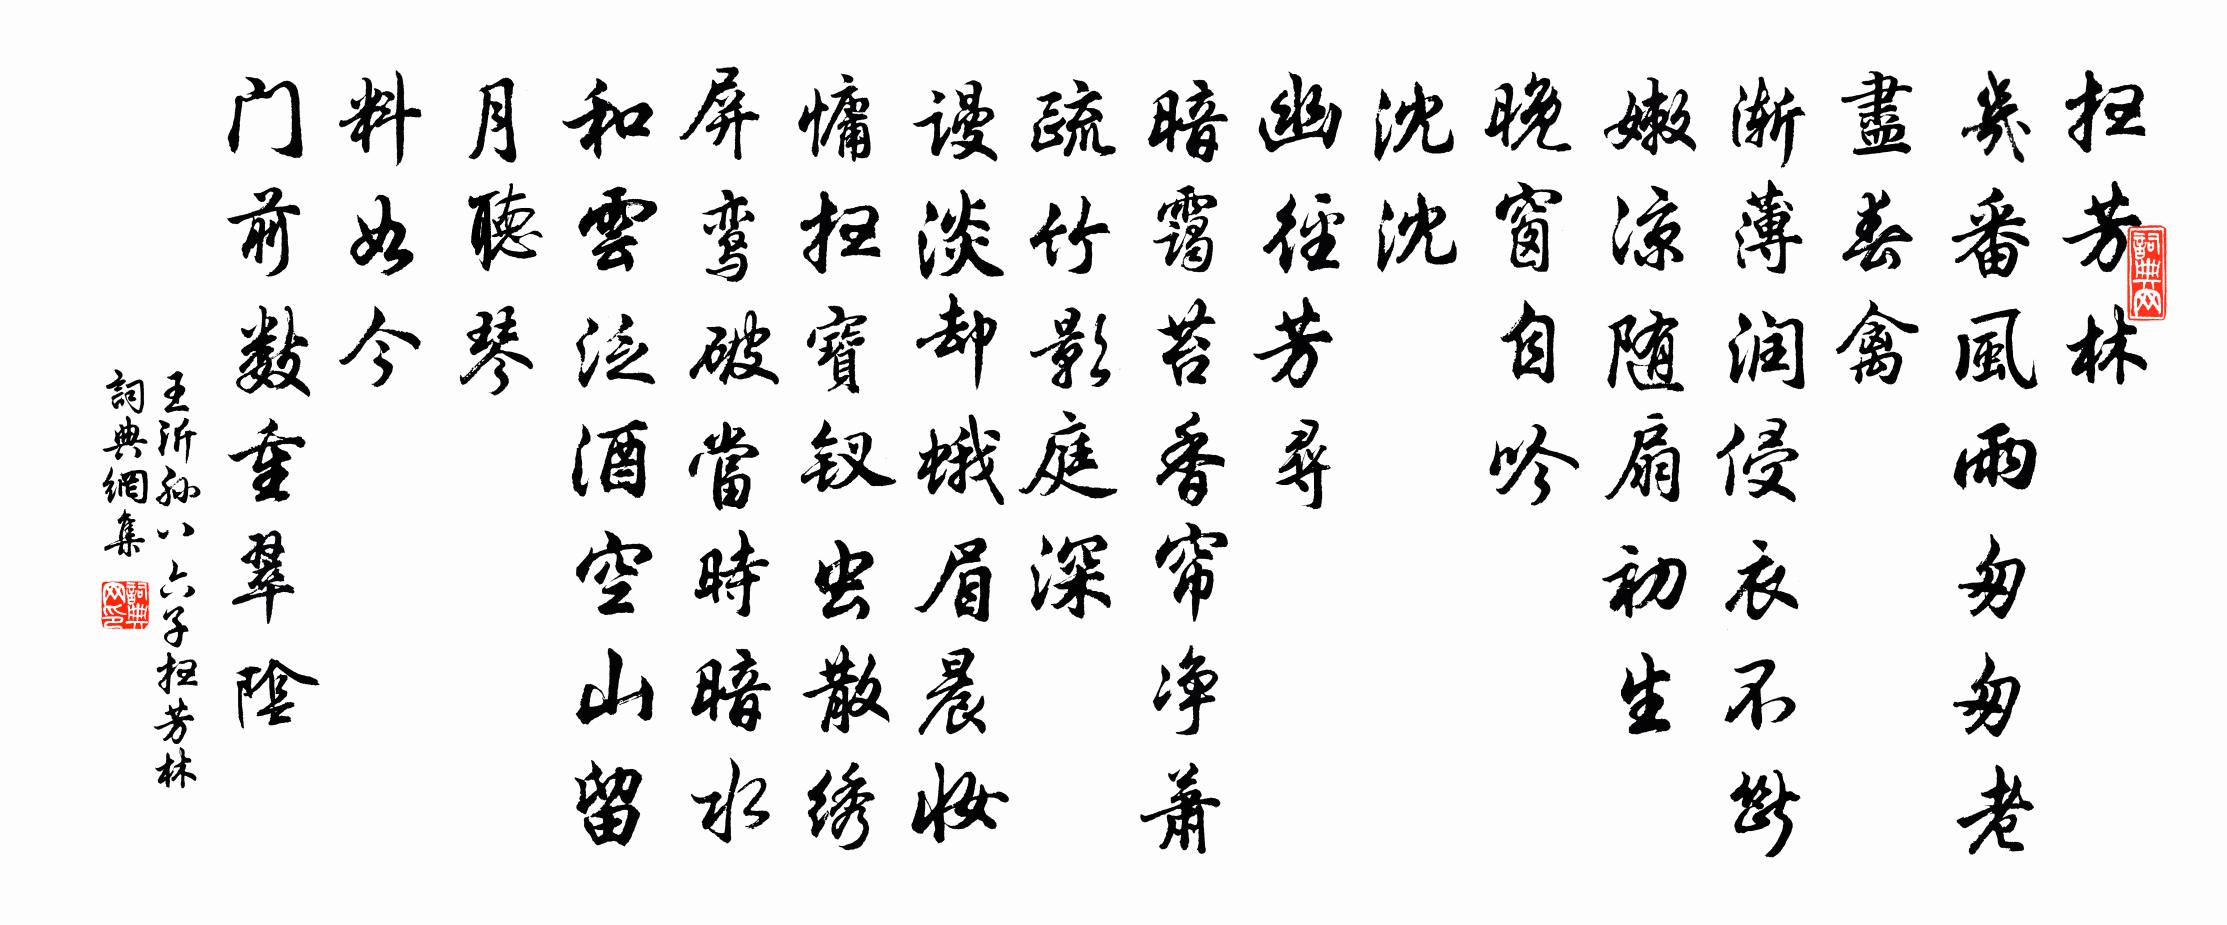 扫芳林
幾番風雨匆匆老
盡春禽
渐薄润侵衣不斷
嫩凉随扇初生
晚窗自吟
沈沈
幽徑芳尋
暗靄苔香帘净萧
疏竹影庭深
谩淡却蛾眉晨妆
慵扫寶钗虫散绣
屏鸾破當時暗水
和雲泛酒空山留
月聽琴
料如今
门前数重翠陰
王沂孙八六子扫芳林
詞典網集
詞典网
詞典网印